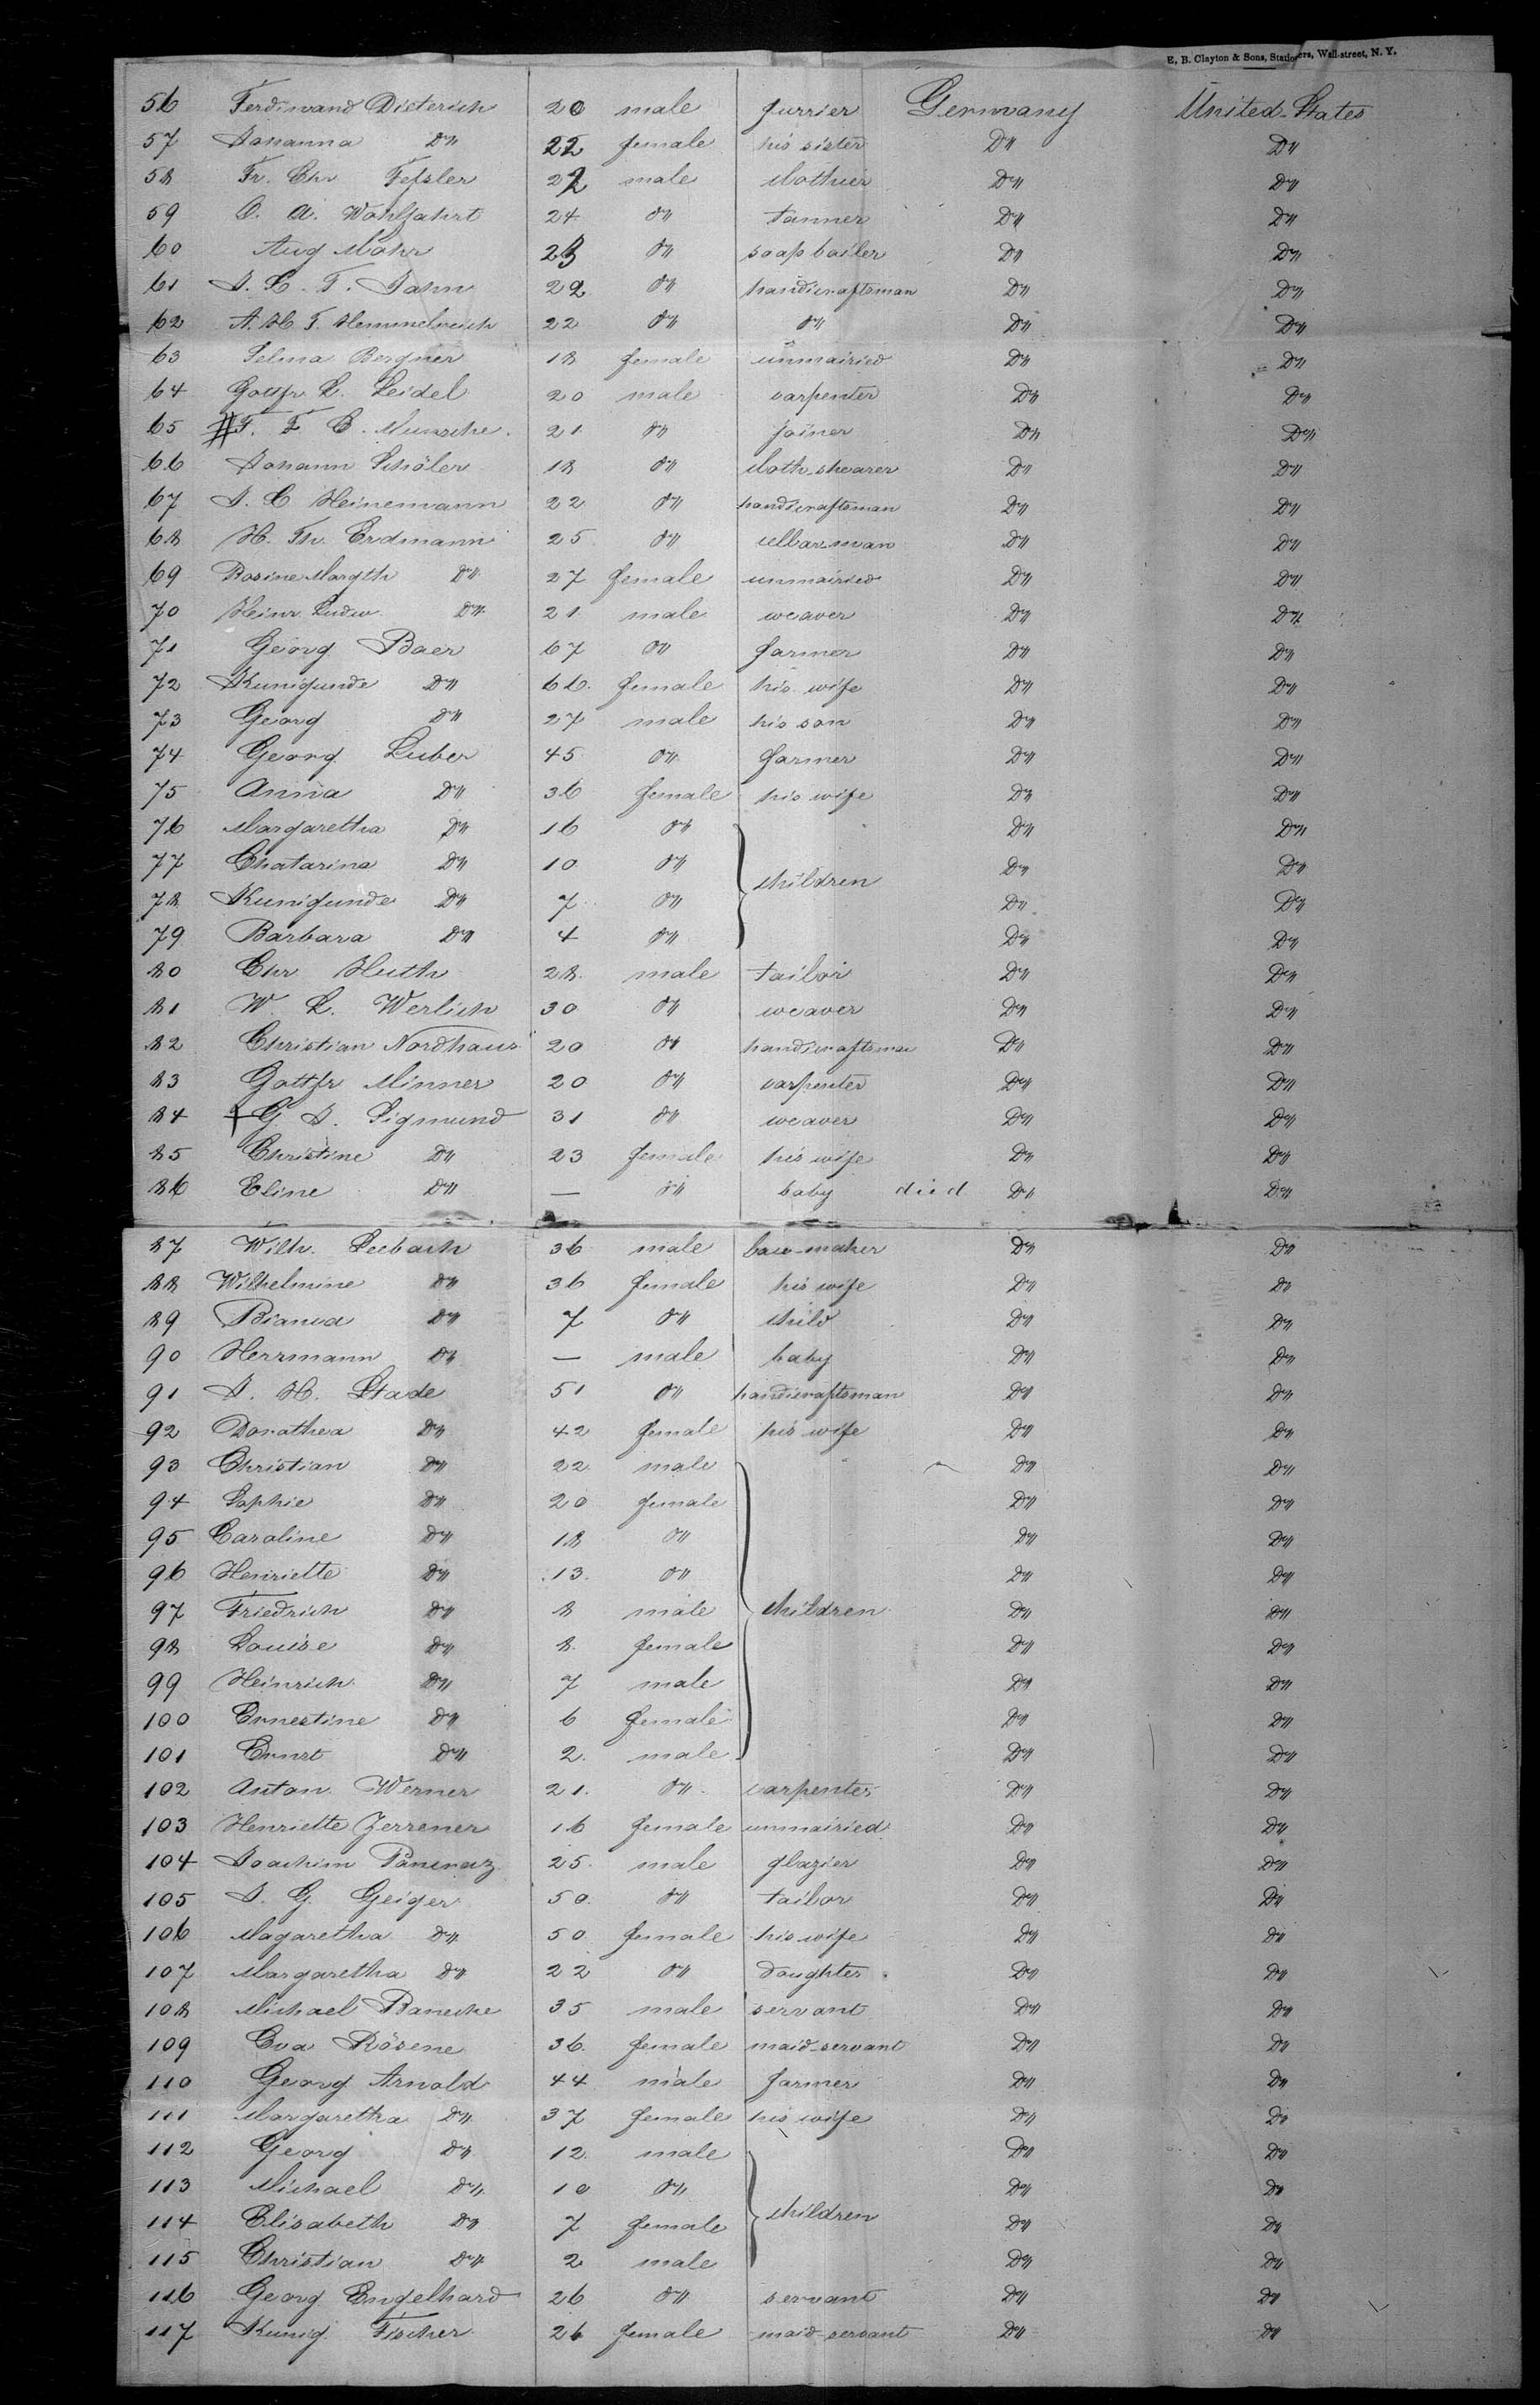 E. B. Clayton & Sons, Stationers, Wall-street, N. Y.
56 Ferdinand Dieterich 20 male furrier Germany United States
57 Johanna Do 22 female his sister Do Do
58 Fr. Chr Feſsler 22 male clothier Do Do
59 C. A. Wohlfahrt 24 do tanner Do Do
60 Aug Mohr 23 do soap boiler Do Do
61 J. C. F. Jahn 22 do handicraftsman Do Do
62 A. H. F. Hemmelreich 22 do do Do Do
63 Selma Bergner 18 female unmairied Do Do
64 Gottfr. L. Seidel 20 male carpenter Do Do
65 F. F. C. Munsche 21 do joiner Do Do
66 Johann Schöler 18 do cloth-shearer Do Do
67 J. C Heinemann 22 do handicraftsman Do Do
68 H. Th. Erdmann 25 do cellarman Do Do
69 Rosine Margth Do 27 female unmairied Do Do
70 Heinr. Ludw. Do 21 male weaver Do Do
71 Georg Baer 67 do farmer Do Do
72 Kunigunde Do 66 female his wife Do Do
73 Georg Do 27 male his son Do Do
74 Georg Luber 45 do farmer Do Do
75 Anna Do 36 female his wife Do Do
76 Margaretha Do 16 do Do Do
77 Chatarina Do 10 do children Do Do
78 Kunigunde Do 7 do Do Do
79 Barbara Do 4 do Do Do
80 Chr Huth 28 male tailor Do Do
81 W. L. Werlich 30 do weaver Do Do
82 Christian Nordhaus 20 do handicraftsman Do Do
83 Gottfr Minner 20 do carpenter Do Do
84 + G J. Sigmund 31 do weaver Do Do
85 Christine Do 23 female his wife Do Do
86 Eline Do — do baby died Do Do
87 Wilh. Seebach 36 male bow-maker Do Do
88 Wilhelmine Do 36 female his wife Do Do
89 Bianca Do 7 do child Do Do
90 Herrmann Do — male baby Do Do
91 J. H. Stade 51 do handicraftsman Do Do
92 Dorothea Do 42 female his wife Do Do
93 Christian Do 22 male Do Do
94 Sophie Do 20 female Do Do
95 Caroline Do 18 do Do Do
96 Henriette Do 13 do Do Do
97 Friedrich Do 8 male children Do Do
98 Louise Do 8 female Do Do
99 Heinrich Do 7 male Do Do
100 Ernestine Do 6 female Do Do
101 Ernst Do 2 male Do Do
102 Anton Werner 21 do carpenter Do Do
103 Henriette Zerrener 16 female unmairied Do Do
104 Joachim Pancraz 25 male glazier Do Do
105 J. G Geiger 50 do tailor Do Do
106 Magaretha Do 50 female his wife Do Do
107 Margaretha Do 22 do daughter Do Do
108 Michael Banecke 35 male servant Do Do
109 Eva Rösene 36 female maid-servant Do Do
110 Georg Arnold 44 male farmer Do Do
111 Margaretha Do 37 female his wife Do Do
112 Georg Do 12 male Do Do
113 Michael Do 10 do Do Do
114 Elisabeth Do 7 female children Do Do
115 Christian Do 2 male Do Do
116 Georg Engelhard 26 do servant Do Do
117 Kunig. Fischer 26 female maid-servant Do Do